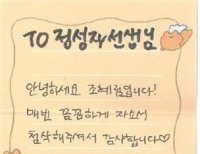 TO 정성자선생님
안녕하세요 조혜림입니다!
매번 꼼꼼하게 자소서
첨삭해주셔서 감사합니다♡